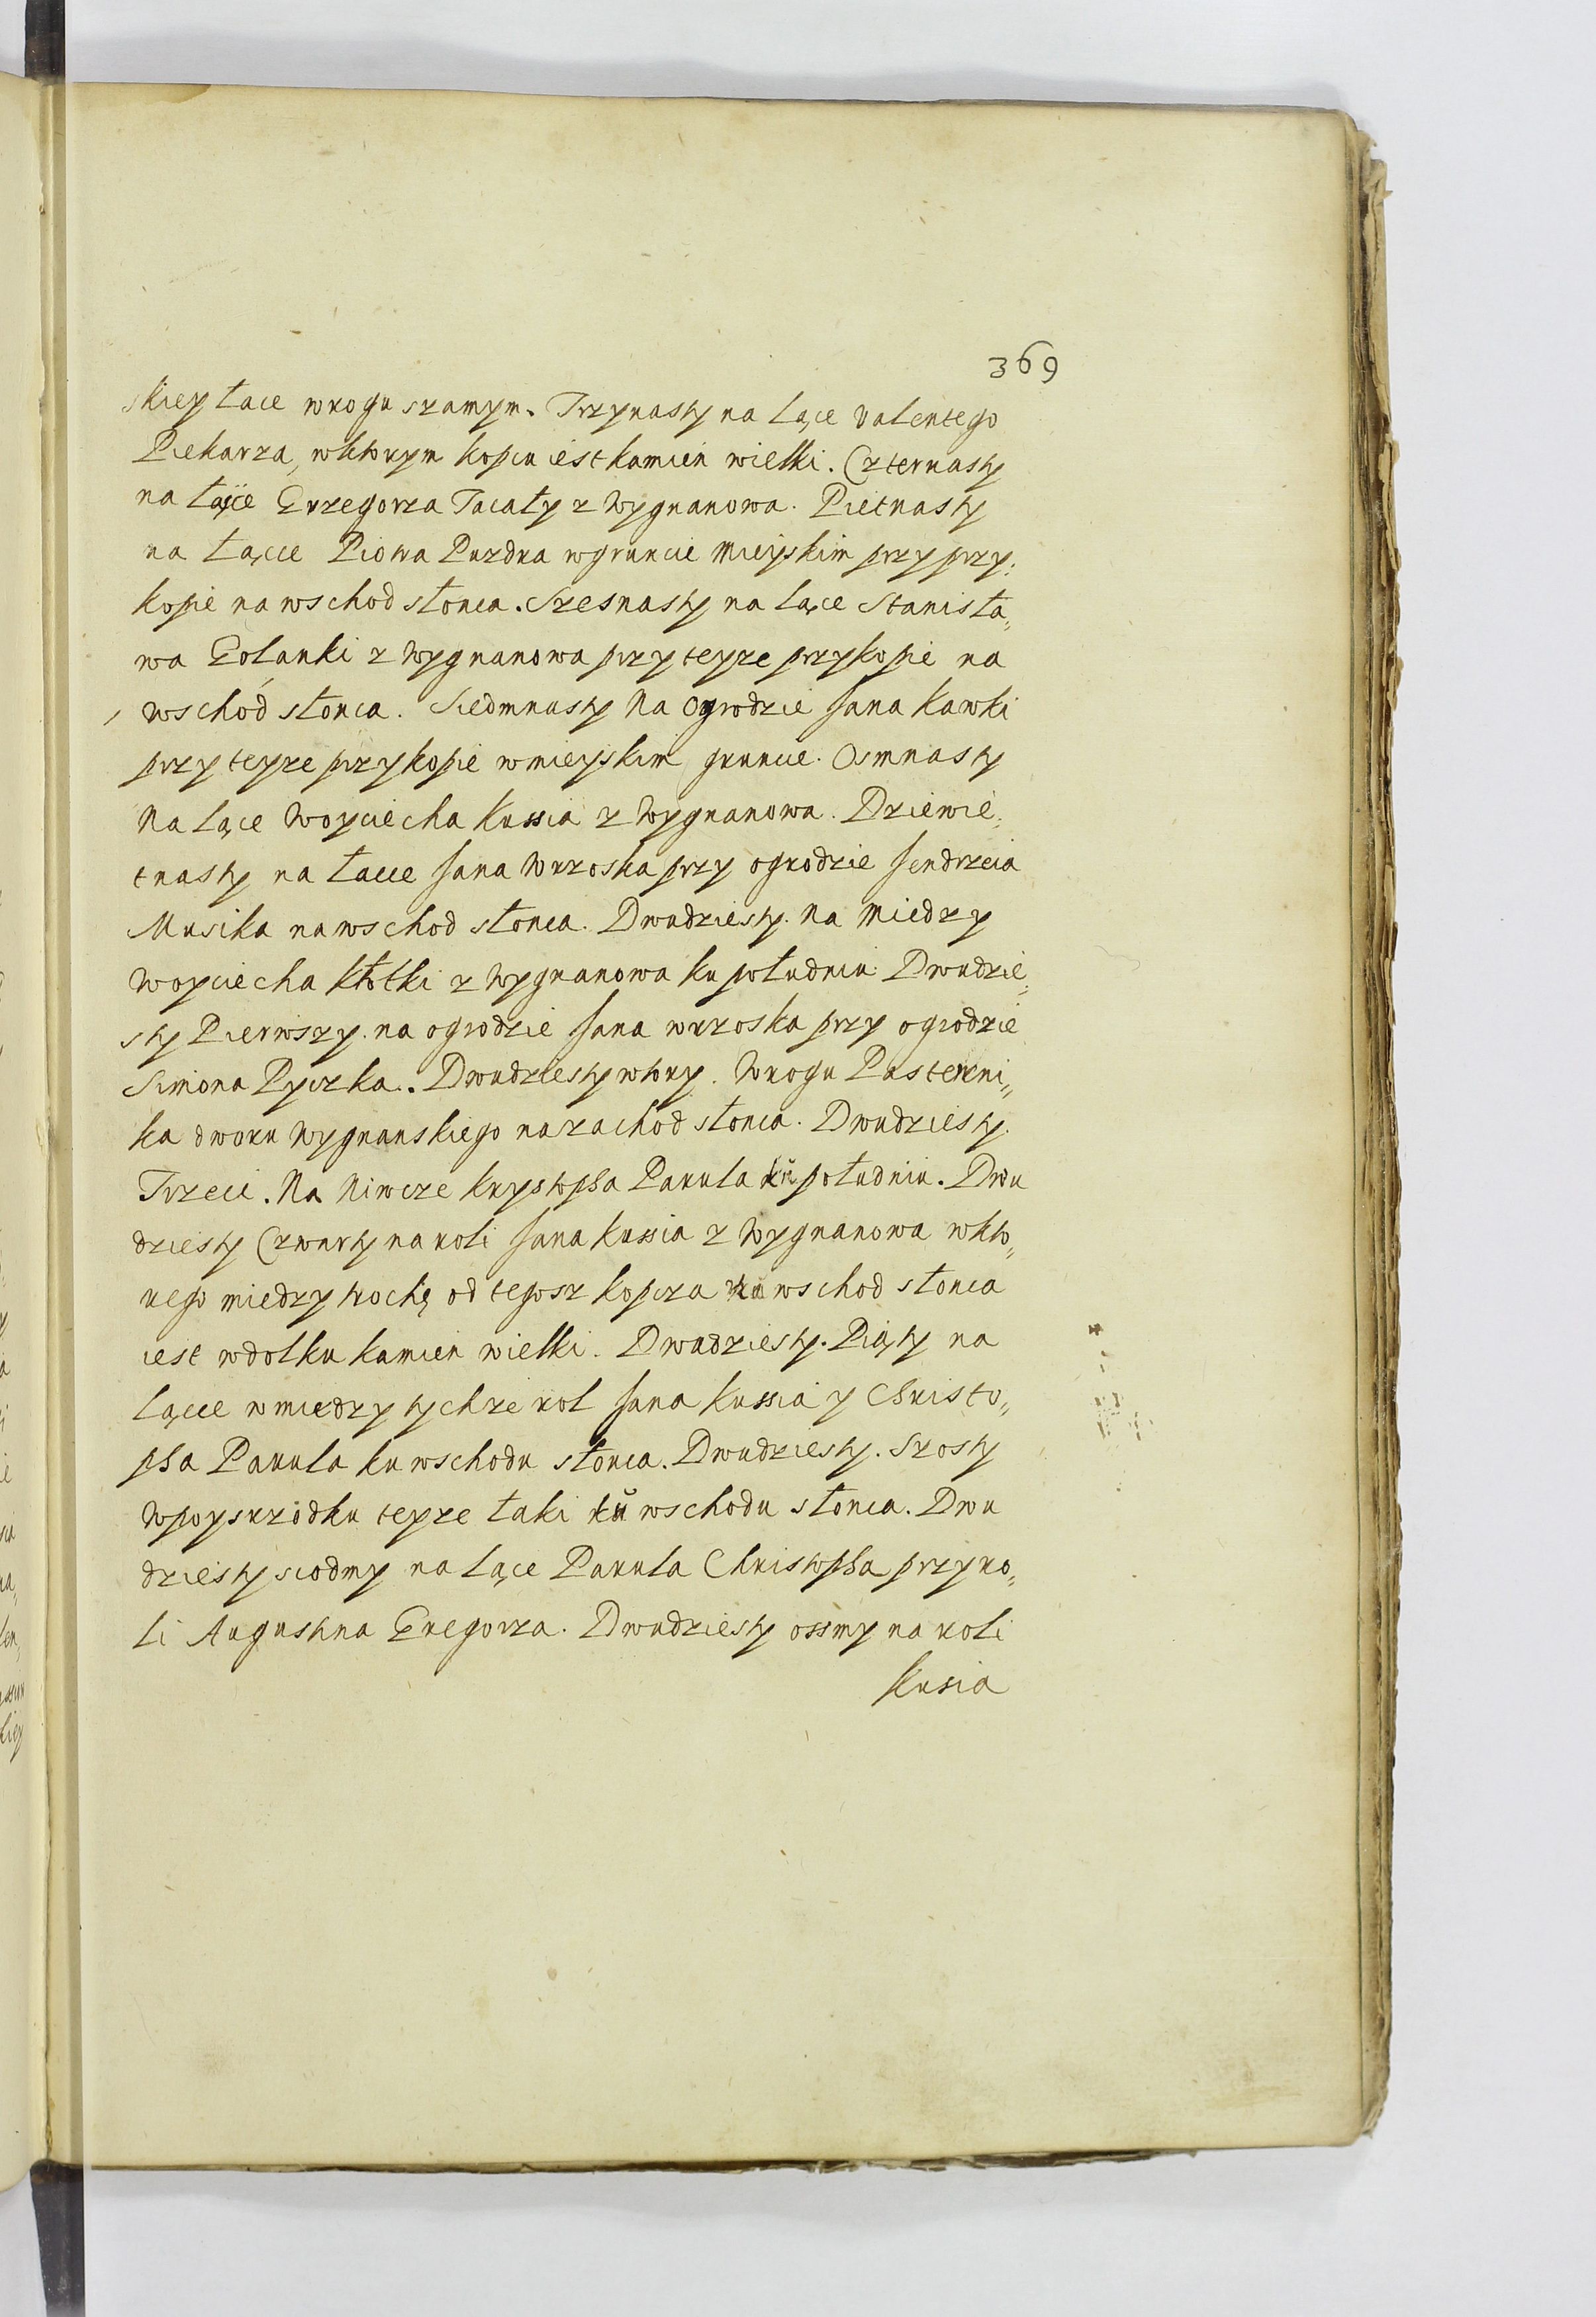 369
skiey łace wrogu szamym. Trzynasty na Lące Valentego
Piekarza, wktorym kopcu iest kamien wielki. Czternasty
na łącce Grzegorza Tacały z Wygnanowa. Pietnasty
na Łącce Piotra Puzdra wgruncie Mieyskim przy przy:
kopie na wschod słonca. Szesnasty na Lące Stanisła,,
wa Golanki z Wygnanowa przy teyze przykopie na
wschod słonca. Siedmnasty Na Ogrodzie Jana Kawki
przy teyze przykopie wmieyskim gruncie. Osmnasty
Na Lące Woyciecha Kussia z Wygnanowa. Dziewie,,
tnasty na Łacce Jana Wrzoska przy ogrodzie Jendrzeia
Musika na wschod słonca. Dwudziesty. na Miedzy
Woyciecha Kłotki z Wygnanowa ku południu Dwudzie,,
sty Pierwszy. na ogrodzie Jana wrzoska przy ogrodzie
Simona Pyczka. Dwudziesty wtory. Wrogu Pasterni,,
ka dworu Wygnanskiego na zachod słonca. Dwudziesty.
Trzeci. Na Niwcze Krystopha Parula ku południu. Dwu
dziesty Czwarty na roli Jana Kussia z Wygnanowa wkto,,
rego miedzy trochę od tegosz kopcza na wschod słonca
iest wdołku kamien wielki. Dwudziesty. Piąty na
Lącce wmiedzy tychze rol Jana Kussia y Christo,,
pha Parula ku wschodu słonca. Dwudziesty. Szosty
Wpoysrzodku teyze łaki ku wschodu słonca. Dwu
dziesty siodmy na Lące Parula Christopha przy ro,,
li Augustina Gregorza. Dwudziesty ossmy na roli
Kusia